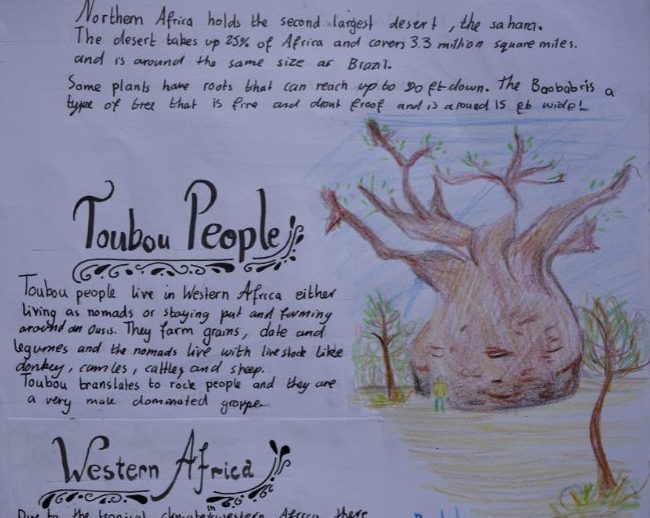 Northern Africa holds the second largest desert, the sahara.
The desert takes up 25% of Africa and covers 3.3 million square miles.
and is around the same size as Brazil.
Some plants have roots that can reach up to 80 ft down. The Boobab is a
type of tree that is fire and dout froof and is around 15 ft wide!
Toubou People
Toubou people live in Western Africa either
living as nomads or staying put and farming
around an Oasis. They farm grains, date and
legumes and the nomads live with livestock like
donkey, camles, cattles and sheep.
Toubou translates to rock people and they are
a very male dominated groupe
Western Africa
Due to the tropical climate in western Africa there